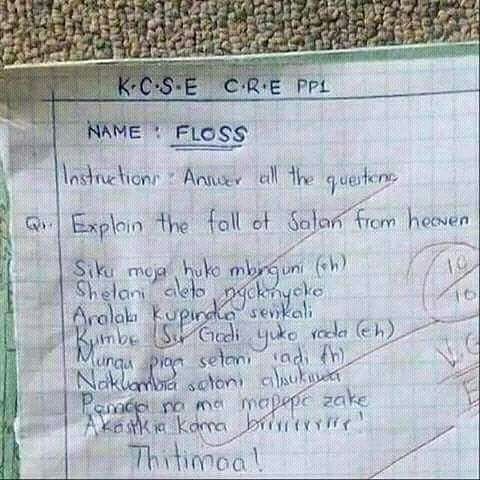 K.C.S.E C.R.E PP1
NAME : FLOSS
Instructions : Answer all the questions
Q1. Explain the fall of Satan from heaven
Siku moja huko mbinguni (eh)
Shetani aleta nyokonyoko
Arataka kupindua serikali
Kumbe Sir Godi yuko rada (eh)
Mungu piga setani radi (h)
Nakwambia setani alisukuwa
Pamoja na ma mapepe zake
Akasikia kama brrrrrrrrr!
Thitimaa!
10
10
V.G